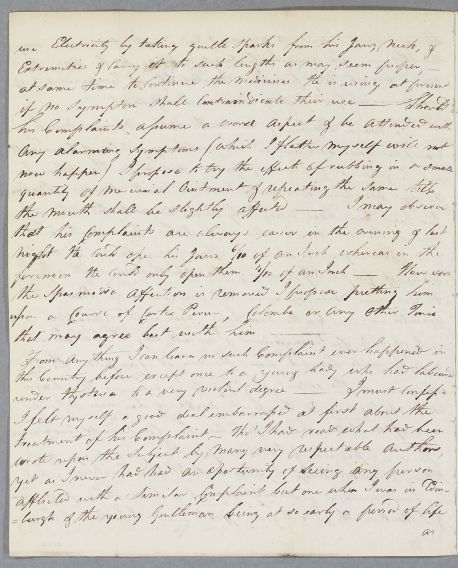 use Electricity by taking gentle Sparks from his Jaws, Neck, &
Extremities & carry it to such lengths as may seem proper
at same time to Continue the Medicines He is using at present
if no Symptom shall Contraindicate their use — Should
his Complaints assume a worse Aspect & be Attended with
any alarming Symptoms (which I flatter myself will not
now happen) I propose to try the effects of rubbing in a small
quantity of Mercurial Ointment & repeating the same till
the mouth shall be slightly affected — I may observe
that his Complaints are always easier in the evening & last
night He could ope his Jaws 6/10 of an Inch whereas in the
forenoon He could only open them /10 of an Inch — How soon
the Spasmodic Affection is removed I propose putting him
upon a Course of Cortex Peruv, Colombo or any other Tonic
that may agree best with him
From any thing I can learn no such Complaint ever happened in
the Country before except once to a young Lady who had laboured
under Hysteria to a very violent degree — I must confess
I felt myself a good deal embarrassed at first about the
treatment of his Complaint — Tho' I had read what had been
wrote upon the Subject by many very respectable Authors
yet as I never had had an oportunity of seeing any person
afflicted with a Similar Complaint but one when I was in Edin-
=burgh & the young Gentleman being at so early a period of life
as